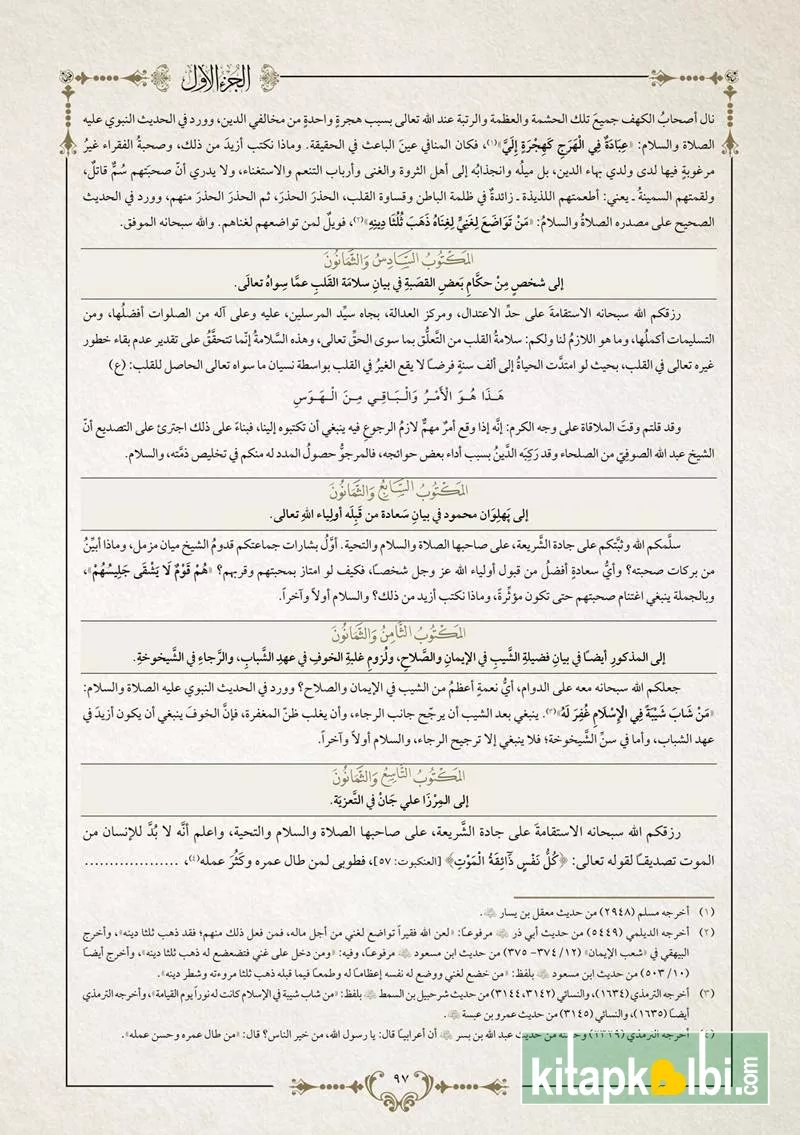 الجزء الأول
نال أصحابُ الكهف جميعَ تلك الحشمة والعظمة والرتبة عند الله تعالى بسبب هجرةٍ واحدةٍ من مخالفي الدين، وورد في الحديث النبوي عليه
الصلاة والسلام: «عِبَادَةٌ فِي الْهَرَجِ كَهِجْرَةٍ إِلَيَّ»(١)، فكان المنافي عينَ الباعث في الحقيقة. وماذا نكتب أزيدَ من ذلك، وصحبةُ الفقراء غيرُ
مرغوبةٍ فيها لدى ولدي بهاء الدين، بل ميلُه وانجذابُه إلى أهل الثروة والغنى وأرباب التنعم والاستغناء، ولا يدري أنّ صحبتَهم سُمٌّ قاتلٌ،
ولقمتهم السمينةُ ـ يعني: أطعمتهم اللذيذة ـ زائدةٌ في ظلمة الباطن وقساوة القلب، الحذرَ الحذرَ، ثم الحذرَ الحذرَ منهم، وورد في الحديث
الصحيح على مصدره الصلاةُ والسلامُ: «مَنْ تَوَاضَعَ لِغَنِيٍّ لِغِنَاهُ ذَهَبَ ثُلُثَا دِينِهِ»(٢)، فويلٌ لمن تواضعهم لغناهم. والله سبحانه الموفق.
المَكْتُوبُ السَّادِسُ وَالثَّمَانُونَ
إلى شخصٍ مِنْ حكَّامِ بَعَضِ القصَبةِ في بيانِ سلامَة القَلبِ عمَّا سِواهُ تعالَى.
رزقكم الله سبحانه الاستقامةَ على حدِّ الاعتدال، ومركز العدالة، بجاه سيِّد المرسلين، عليه وعلى آله من الصلوات أفضلُها، ومن
التسليمات أكملُها، وما هو اللازمُ لنا ولكم: سلامةُ القلب من التَّعلُّق بما سوى الحقِّ تعالى، وهذه السَّلامةُ إنّما تتحقَّقُ على تقدير عدم بقاء خطور
غيره تعالى في القلب، بحيث لو امتدَّت الحياةُ إلى ألف سنةٍ فرضـًا لا يقع الغيرُ في القلب بواسطة نسيان ما سواه تعالى الحاصل للقلب: (ع)
هَـذَا هُـوَ الْأَمْـرُ وَالْـبَـاقِـي مِـنَ الْـهَـوَسِ
وقد قلتم وقتَ الملاقاة على وجه الكرم: إنَّه إذا وقع أمرٌ مهمٌّ لازمُ الرجوعِ فيه ينبغي أن تكتبوه إلينا، فبناءً على ذلك اجترئ على التصديع أنّ
الشيخ عبد الله الصوفيّ من الصلحاء وقد رَكِبَه الدَّينُ بسبب أداء بعض حوائجه، فالمرجوُّ حصولُ المدد له منكم في تخليص ذمَّته، والسلام.
المَكْتُوبُ السَّابِعُ وَالثَّمَانُونَ
إلى پَهلِوَان محمود في بيانِ سَعادة من قَبِلَه أولِياء اللهِ تعالى.
سلَّمكم الله وثبَّتكم على جادة الشَّريعة، على صاحبها الصلاة والسلام والتحية. أوَّلُ بشارات جماعتكم قدومُ الشيخ ميان مزمل، وماذا أبيِّنُ
من بركات صحبته؟ وأيُّ سعادةٍ أفضلُ من قبول أولياء الله عز وجل شخصـًا، فكيف لو امتاز بمحبتهم وقربهم؟ «هُمْ قَوْمٌ لَا يَشْقَى جَلِيسُهُمْ»،
وبالجملة ينبغي اغتنام صحبتهم حتى تكون مؤثِّرةً، وماذا نكتب أزيد من ذلك؟ والسلام أولاً وآخراً.
المَكْتُوبُ الثَّامِنُ وَالثَّمَانُونَ
إلى المذكورِ أيضـًا في بيانِ فضيلةِ الشَّيبِ في الإيمانِ والصَّلاحِ، ولُزومِ غلبةِ الخوفِ في عهدِ الشَّبابِ، والرَّجاءِ في الشَّيخوخةِ.
جعلكم الله سبحانه معه على الدوام، أيُّ نعمةٍ أعظمُ من الشيب في الإيمان والصلاح؟ وورد في الحديث النبوي عليه الصلاة والسلام:
«مَنْ شَابَ شَيْبَةً فِي الْإِسْلَامِ غُفِرَ لَهُ»(٣). ينبغي بعد الشيب أن يرجّح جانب الرجاء، وأن يغلب ظنّ المغفرة، فإنَّ الخوفَ ينبغي أن يكون أزيدَ في
عهد الشباب، وأما في سنِّ الشَّيخوخة؛ فلا ينبغي إلا ترجيح الرجاء، والسلام أولاً وآخراً.
المَكْتُوبُ التَّاسِعُ وَالثَّمَانُونَ
إلى المِرْزَا علي جَانْ في التَّعزيَة.
رزقكم الله سبحانه الاستقامةَ على جادة الشَّريعة، على صاحبها الصلاة والسلام والتحية، واعلم أنَّه لا بُدَّ للإنسان من
الموت تصديقـًا لقوله تعالى: ﴿كُلُّ نَفْسٍ ذَآئِقَةُ الْمَوْتِ﴾ [العنكبوت: ٥٧]، فطوبى لمن طال عمره وكَثُرَ عمله(٤)، ..................
(١) أخرجه مسلم (٢٩٤٨) من حديث معقل بن يسار ﷺ.
(٢) أخرجه الديلمي (٥٤٤٩) من حديث أبي ذر مرفوعـًا: «لعن الله فقيراً تواضع لغني من أجل ماله، فمن فعل ذلك منهم؛ فقد ذهب ثلثا دينه»، وأخرج
البيهقي في «شعب الإيمان» (١٢/ ٣٧٤- ٣٧٥ من حديث ابن مسعود مرفوعـًا، وفيه: «ومن دخل على غني فتضعضع له ذهب ثلثا دينه»، وأخرج أيضـًا
(١٠/ ٥٠٣) من حديث ابن مسعود بلفظ: «من خضع لغني ووضع له نفسه إعظامـًا له وطمعـًا فيما قبله ذهب ثلثا مروءته وشطر دينه».
(٣) أخرجه الترمذي (١٦٣٤)، والنسائي (٣١٤٢، ٣١٤٤) من حديث شرحبيل بن السمط بلفظ: «من شاب شيبة في الإسلام كانت له نوراً يوم القيامة»، وأخرجه الترمذي
أيضـًا (١٦٣٥)، والنسائي (٣١٤٥) من حديث عمرو بن عبسة.
(٤) أخرجه الترمذي من حديث عبد الله بن بسر أن أعرابيـًا قال: يا رسول الله، من خير الناس؟ قال: «من طال عمره وحسن عمله».
٩٧
kitapkalbi.com